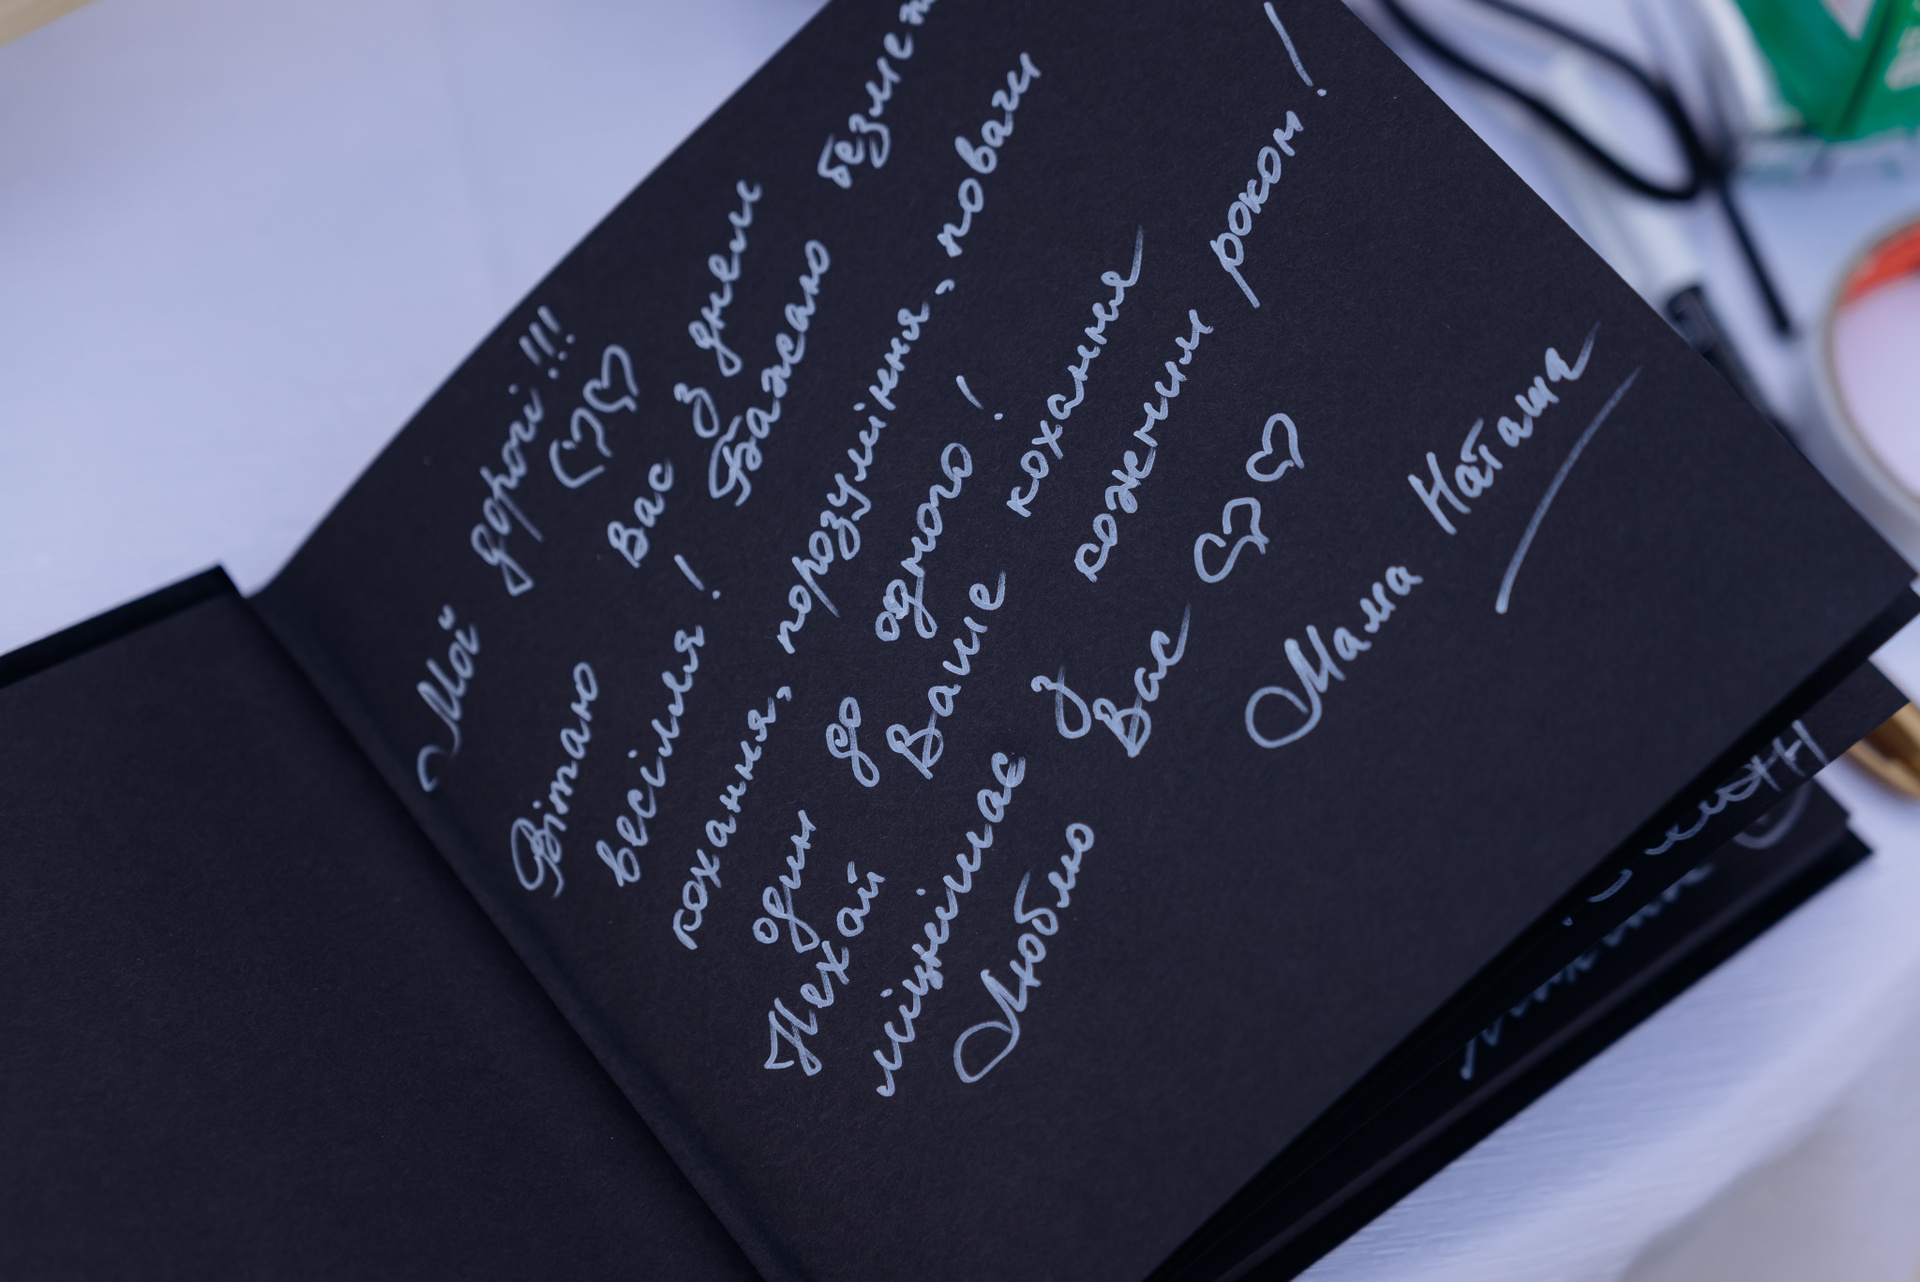 Мої дорогі!!! ♡♡
Вітаю Вас з днем
весілля! Бажаю безмеж
кохання, порозуміння, поваги
один до одного!
Нехай Ваше кохання
міцнішає з кожним роком!
Люблю Вас ♡♡
Мама Наташа